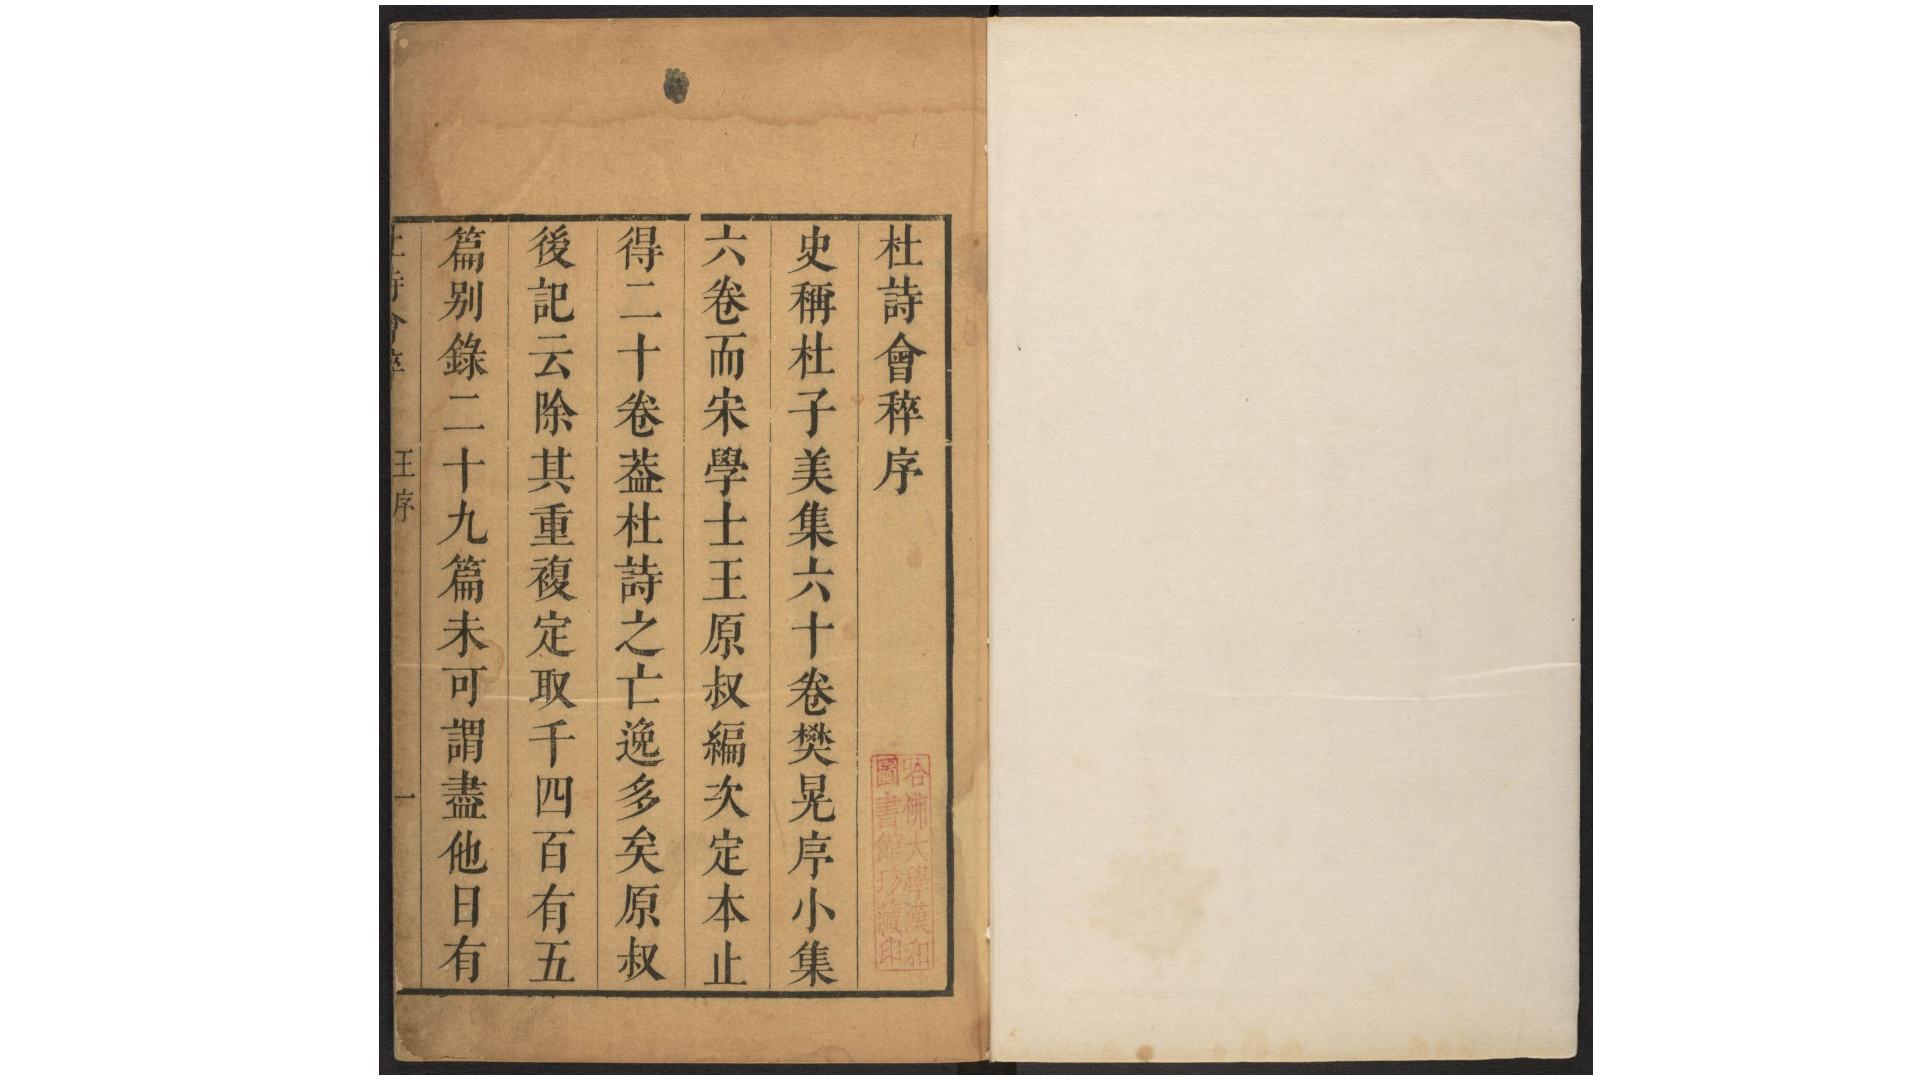 杜詩會稡序
史稱杜子美集六十卷樊晃序小集
六卷而宋學士王原叔編次定本止
得二十卷葢杜詩之亡逸多矣原叔
後記云除其重複定取千四百有五
篇别錄二十九篇未可謂盡他日有
杜詩會稡 王序 一
哈佛大學漢和
圖書館珍藏印